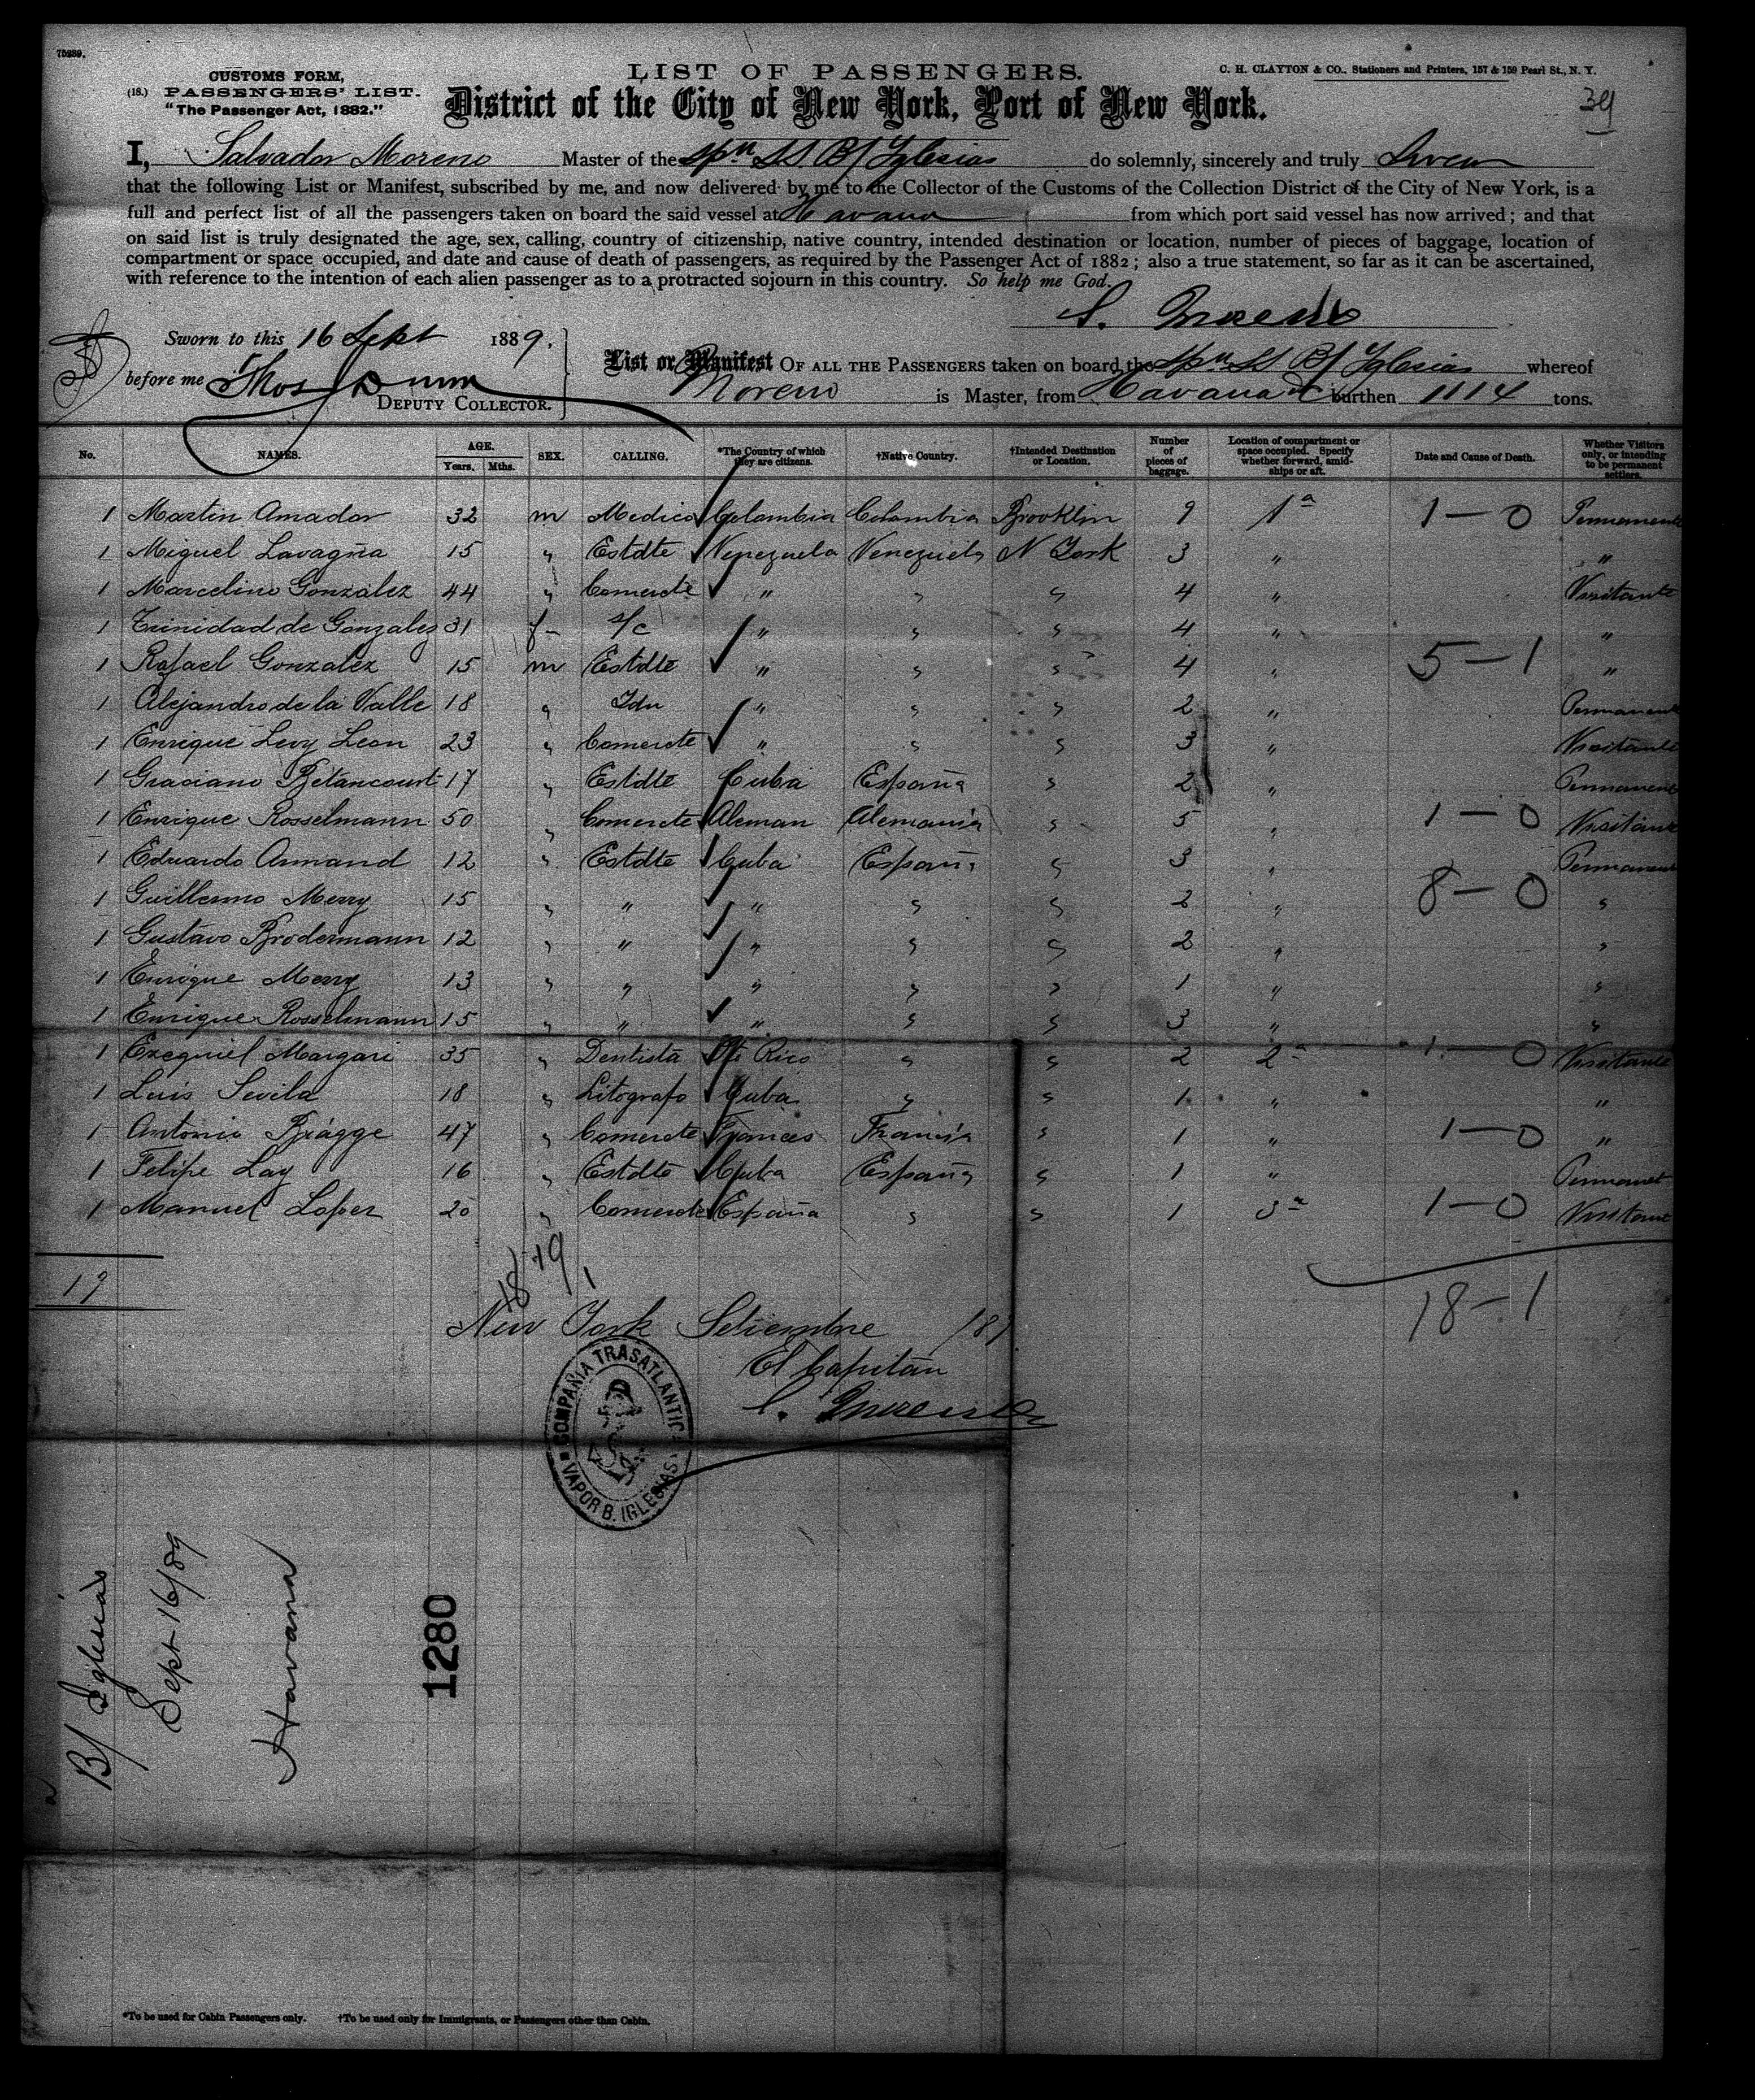 75289.
CUSTOMS FORM,
(18.) PASSENGERS' LIST.
"The Passenger Act, 1882."
LIST OF PASSENGERS.
C. H. CLAYTON & CO., Stationers and Printers, 157 & 159 Pearl St., N. Y.
District of the City of New York, Port of New York.
39
I, Salvador Moreno Master of the Spn SS B/ Yglesias do solemnly, sincerely and truly Swear
that the following List or Manifest, subscribed by me, and now delivered by me to the Collector of the Customs of the Collection District of the City of New York, is a
full and perfect list of all the passengers taken on board the said vessel at Havana from which port said vessel has now arrived; and that
on said list is truly designated the age, sex, calling, country of citizenship, native country, intended destination or location, number of pieces of baggage, location of
compartment or space occupied, and date and cause of death of passengers, as required by the Passenger Act of 1882; also a true statement, so far as it can be ascertained,
with reference to the intention of each alien passenger as to a protracted sojourn in this country. So help me God.
S. Moreno
Sworn to this 16 Sept 1889.
before me Thos J Dunn
DEPUTY COLLECTOR.
List or Manifest OF ALL THE PASSENGERS taken on board the Spn SS B/ Yglesias whereof
Moreno is Master, from Havana burthen 1114 tons.
No. NAMES. AGE. Years. Mths. SEX. CALLING. *The Country of which they are citizens. †Native Country. †Intended Destination or Location. Number of pieces of baggage. Location of compartment or space occupied. Specify whether forward, amidships or aft. Date and Cause of Death. Whether Visitors only, or intending to be permanent settlers.
1 Martin Amador 32 m Medico Colombia Colombia Brooklin 9 1a 1-0 Permanente
1 Miguel Lavagña 15 " Estdte Venezuela Venezuela N York 3 " "
1 Marcelino Gonzalez 44 " Comercte " " " 4 " Visitante
1 Trinidad de Gonzalez 31 f S/c " " " 4 " "
1 Rafael Gonzalez 15 m Estdte " " " 4 " 5-1 "
1 Alejandro de la Valle 18 " Idn " " " 2 " Permanente
1 Enrique Levy Leon 23 " Comercte " " " 3 " Visitante
1 Graciano Betancourt 17 " Estdte Cuba España " 2 " Permanente
1 Enrique Rosselmann 50 " Comercte Aleman Alemania " 5 " 1-0 Visitante
1 Eduardo Armand 12 " Estdte Cuba España " 3 " Permanente
1 Guillermo Merry 15 " " " " " 2 " 8-0 "
1 Gustavo Brodermann 12 " " " " " 2 " "
1 Enrique Merry 13 " " " " " 1 " "
1 Enrique Rosselmann 15 " " " " " 3 " "
1 Ezequiel Margari 35 " Dentista Pto Rico " " 2 2a 1-0 Visitante
1 Luis Sevila 18 " Litografo Cuba " " 1 " "
1 Antonio Brágge 47 " Comercte Frances Francia " 1 " 1-0 "
1 Felipe Lay 16 " Estdte Cuba España " 1 " Permanet
1 Manuel Lopez 20 " Comercte España " " 1 3a 1-0 Visitante
19
18 19 1
18-1
New York Setiembre 189
El Capitán
S. Moreno
COMPAÑIA TRASATLANTICA
VAPOR B. IGLESIAS
B/ Iglesias
Sept 16/89
Havana
1280
*To be used for Cabin Passengers only. †To be used only for Immigrants, or Passengers other than Cabin.